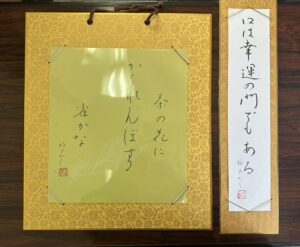 茶の花に
かくれんぼする
雀かな
口は幸運の門でもある